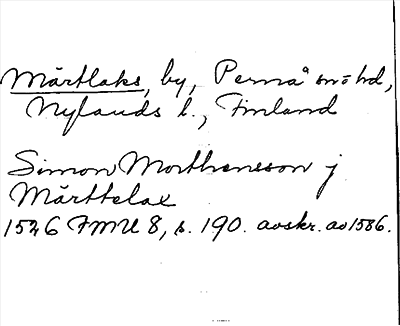 Mårtlaks, by, Pernå sn o hd,
Nylands l., Finland
Simon Morthensson j
Mårttelax
1526 FMU 8, s. 190. avskr. av 1586.